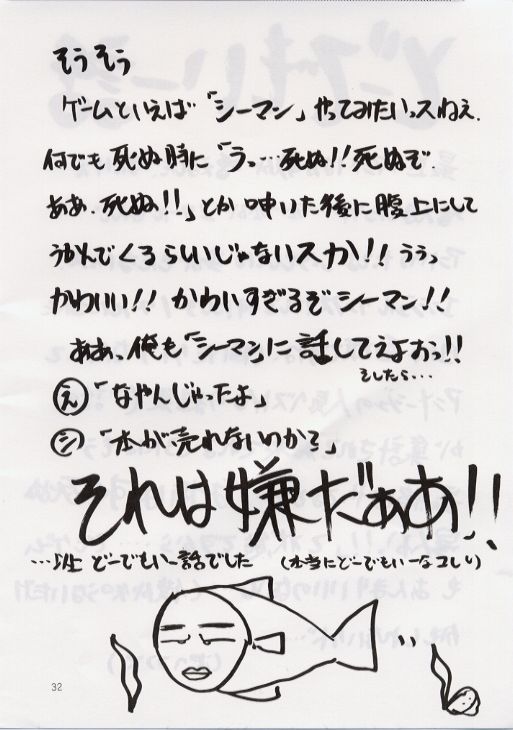 そうそう
ゲームといえば「シーマン」やってみたいっスねえ.
何でも死ぬ時に「うっ…死ぬ!!死ぬぞ.
ああ.死ぬ!!」とか呻いた後に腹上にして
うかんでくるらしいじゃないスか!!ううっ
かわいい!!かわいすぎるぞシーマン!!
ああっ俺も「シーマン」に話してえよおっ!!
そしたら…
え「なやんじゃったよ」
シ「本が売れないのか?」
それは嫌だぁあ!!
…以上 どーでもいー話でした (本当にどーでもいーなコレ!)
32